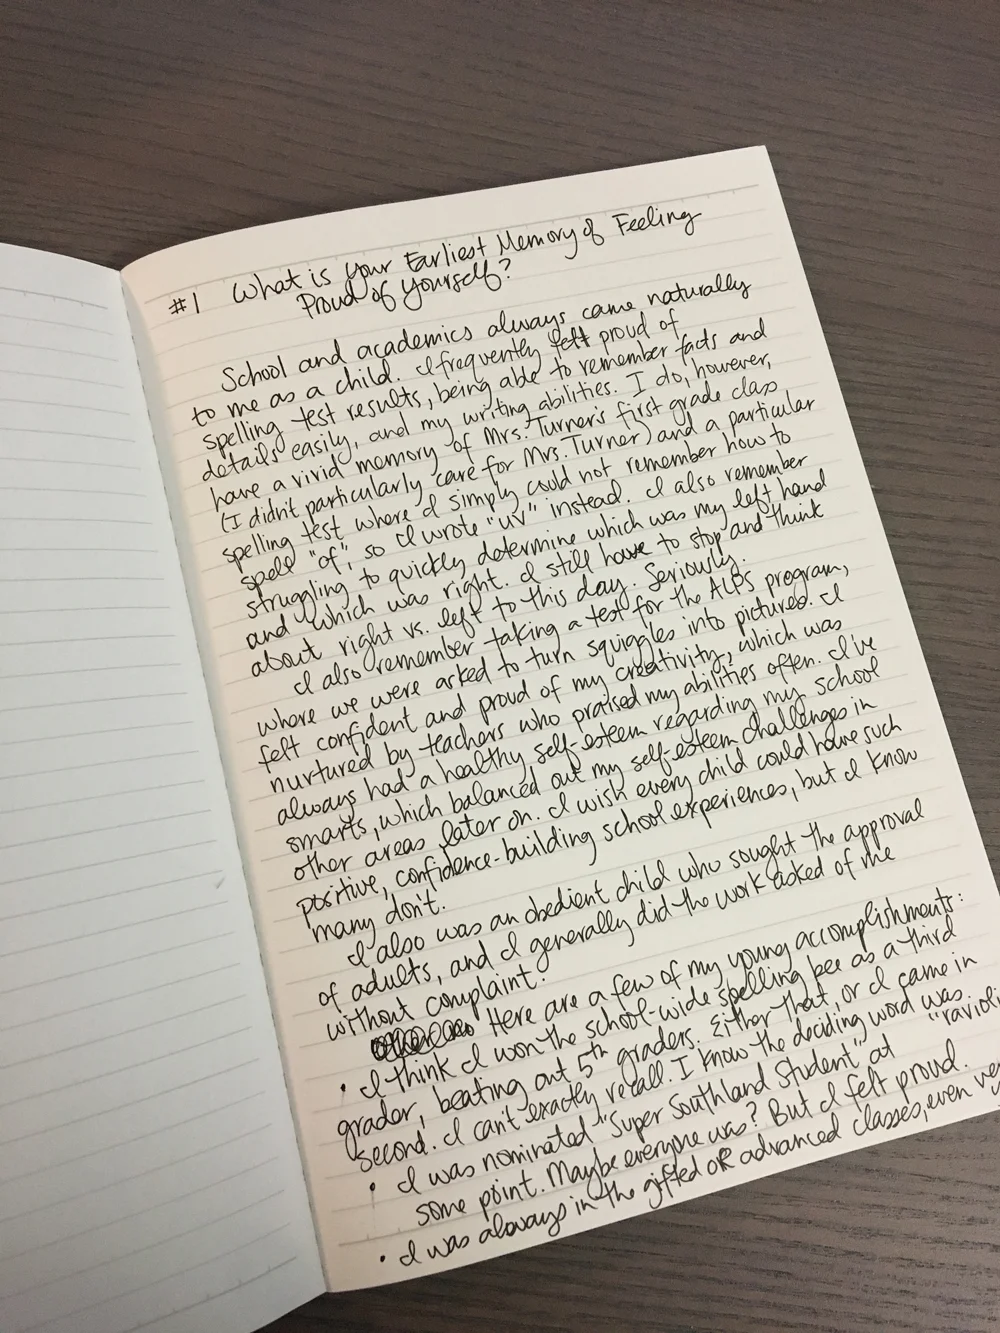 #1 What is Your Earliest Memory of Feeling
Proud of Yourself?
School and academics always came naturally
to me as a child. I frequently felt proud of
spelling test results, being able to remember facts and
details easily, and my writing abilities. I do, however,
have a vivid memory of Mrs. Turner's first grade class
(I didn't particularly care for Mrs. Turner) and a particular
spelling test where I simply could not remember how to
spell "of", so I wrote "uv" instead. I also remember
struggling to quickly determine which was my left hand
and which was right. I still have to stop and think
about right vs. left to this day. Seriously.
I also remember taking a test for the ALPS program,
where we were asked to turn squiggles into pictures. I
felt confident and proud of my creativity, which was
nurtured by teachers who praised my abilities often. I've
always had a healthy self-esteem regarding my school
smarts, which balanced out my self-esteem challenges in
other areas later on. I wish every child could have such
positive, confidence-building school experiences, but I know
many don't.
I also was an obedient child who sought the approval
of adults, and I generally did the work asked of me
without complaint.
Here are a few of my young accomplishments:
• I think I won the school-wide spelling bee as a third
grader, beating out 5th graders. Either that, or I came in
second. I can't exactly recall. I know the deciding word was "ravioli
• I was nominated "Super Southland Student" at
some point. Maybe everyone was? But I felt proud.
• I was always in the gifted OR advanced classes, even